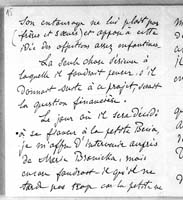 Son entourage ne lui plaît pas
(frères et sœurs) et oppose à cette
idée des objections assez enfantines.
La seule chose sérieuse à
laquelle il faudrait penser, s'il
donnait suite à ce projet, serait
la question financière.
Le jour où il sera décidé
à se fiancer à la petite
je m'offre d'intervenir auprès
de Marie Branicka, mais
encore faudrait il qu'il ne
tarde pas trop car la petite ne